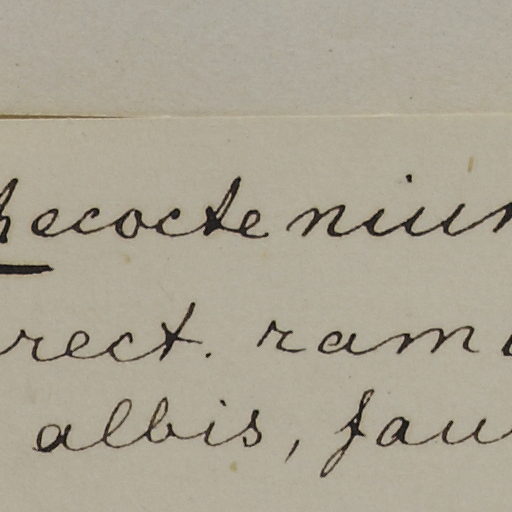 hecoctenium
rect. ram
albis, fau